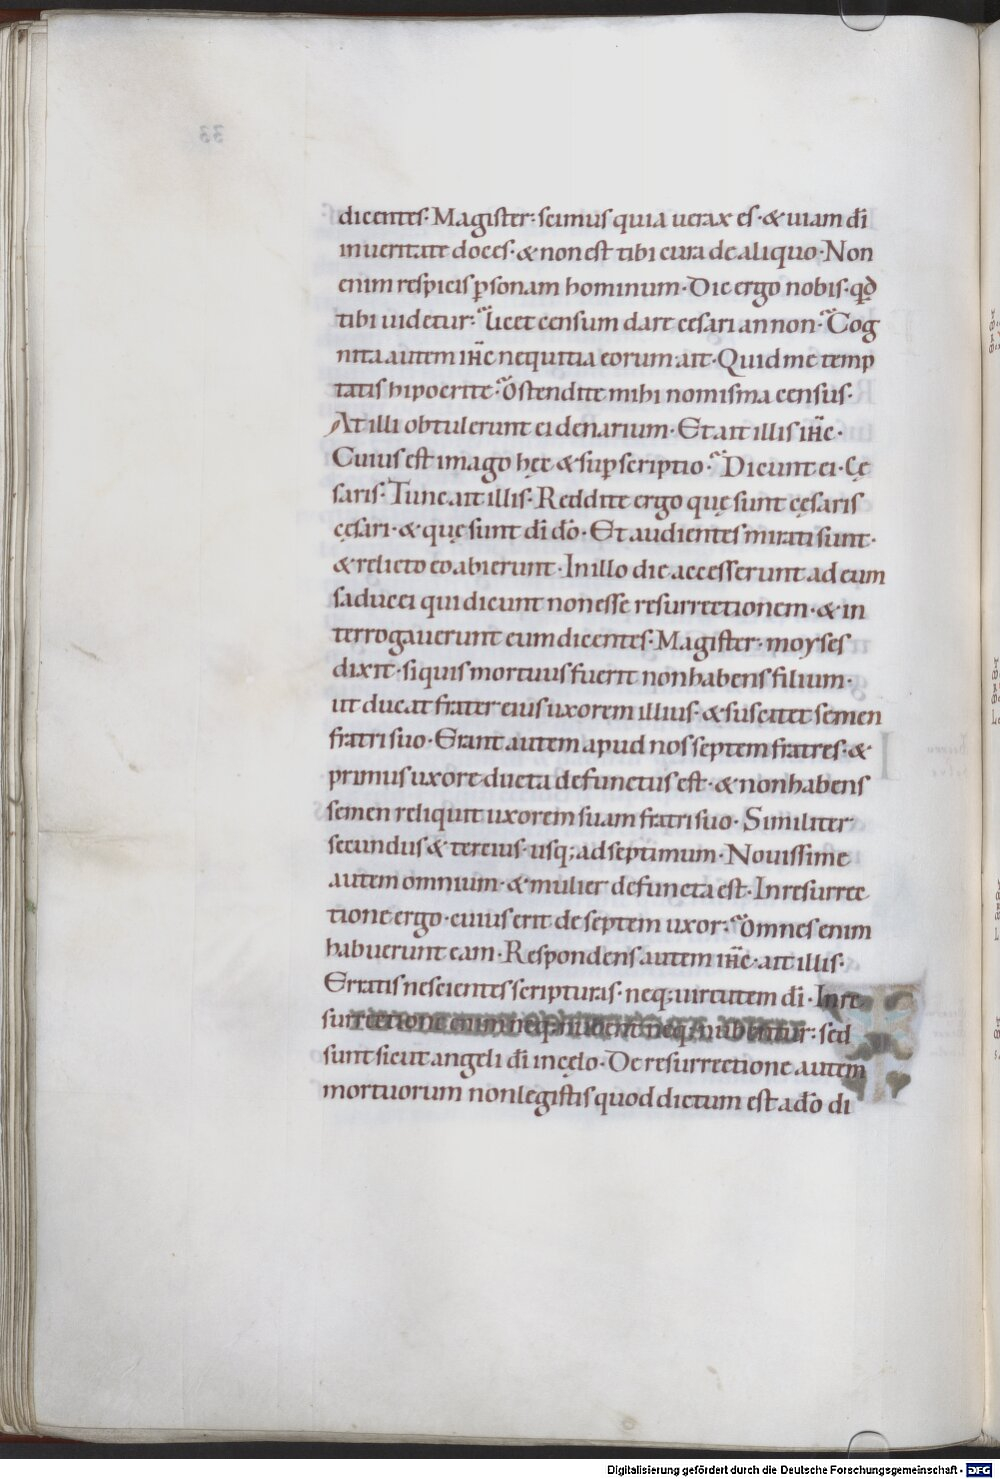 dicentes· Magister: scimus quia uerax es· & uiam dī
inueritate doces· & non est tibi cura de aliquo· Non
enim respicis psonam hominum· Dic ergo nobis· qđ
tibi uidetur: licet censum dare cesari an non· Cog
nita autem ihc nequitia eorum· ait· Quid me temp
tatis hipocrite· Ostendite mihi nomisma census·
At illi obtulerunt ei denarium· Et ait illis ihc·
Cuius est imago hęc & supscriptio· Dicunt ei· Cę
saris· Tunc ait illis· Reddite ergo quę sunt cęsaris
cęsari· & quę sunt dī do· Et audientes mirati sunt·
& relicto eo abierunt· In illo die accesserunt ad eum
saducei qui dicunt non esse resurrectionem· & in
terrogauerunt eum dicentes· Magister· moyses
dixit· si quis mortuus fuerit non habens filium·
ut ducat frater eius uxorem illius· & suscitet semen
fratri suo· Erant autem apud nos septem fratres· &
primus uxore ducta defunctus est· & non habens
semen reliquit uxorem suam fratri suo· Similiter
secundus & tercius· usq; ad septimum· Nouissime
autem omnium· & mulier defuncta est· In resurrec
tione ergo· cuius erit de septem uxor: omnes enim
habuerunt eam· Respondens autem ihc· ait illis·
Erratis nescientes scripturas· neq; uirtutem dī· In re
surrectione enim neq; nubent neq; nubentur: sed
sunt sicut angeli dī in cęlo· De resurrectione autem
mortuorum non legistis quod dictum est a do di
Digitalisierung gefördert durch die Deutsche Forschungsgemeinschaft - DFG